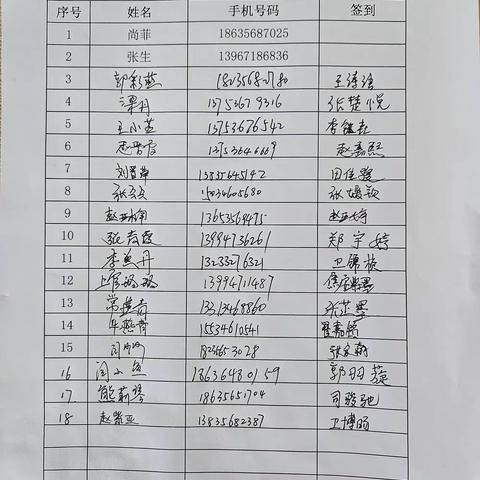 序号 姓名 手机号码 签到
1 尚菲 18635687025
2 张生 13967186836
3 郭彩燕 18235682780 王涛涵
4 潭丹 13753679316 张楚悦
5 王小英 13753676542
6 赵晋霞 13753646669 赵嘉熙
7 刘晋萍 13835645142 田佳骏
8 15034605680 张媛颖
9 13653569475
10 张育霞 13994736261 郑宇婷
11 李焦丹 13233276321 卫锦校
12 上官玛玛 13994711487
13 常艳青 13313468860 张芷墨
14 15534610541
15 闫 18235653028 张家翰
16 闫小鱼 18636480159 郭羽蔬
17 熊莉琴 18635651704 司骏驰
18 赵紫亚 13835682387 卫博旸